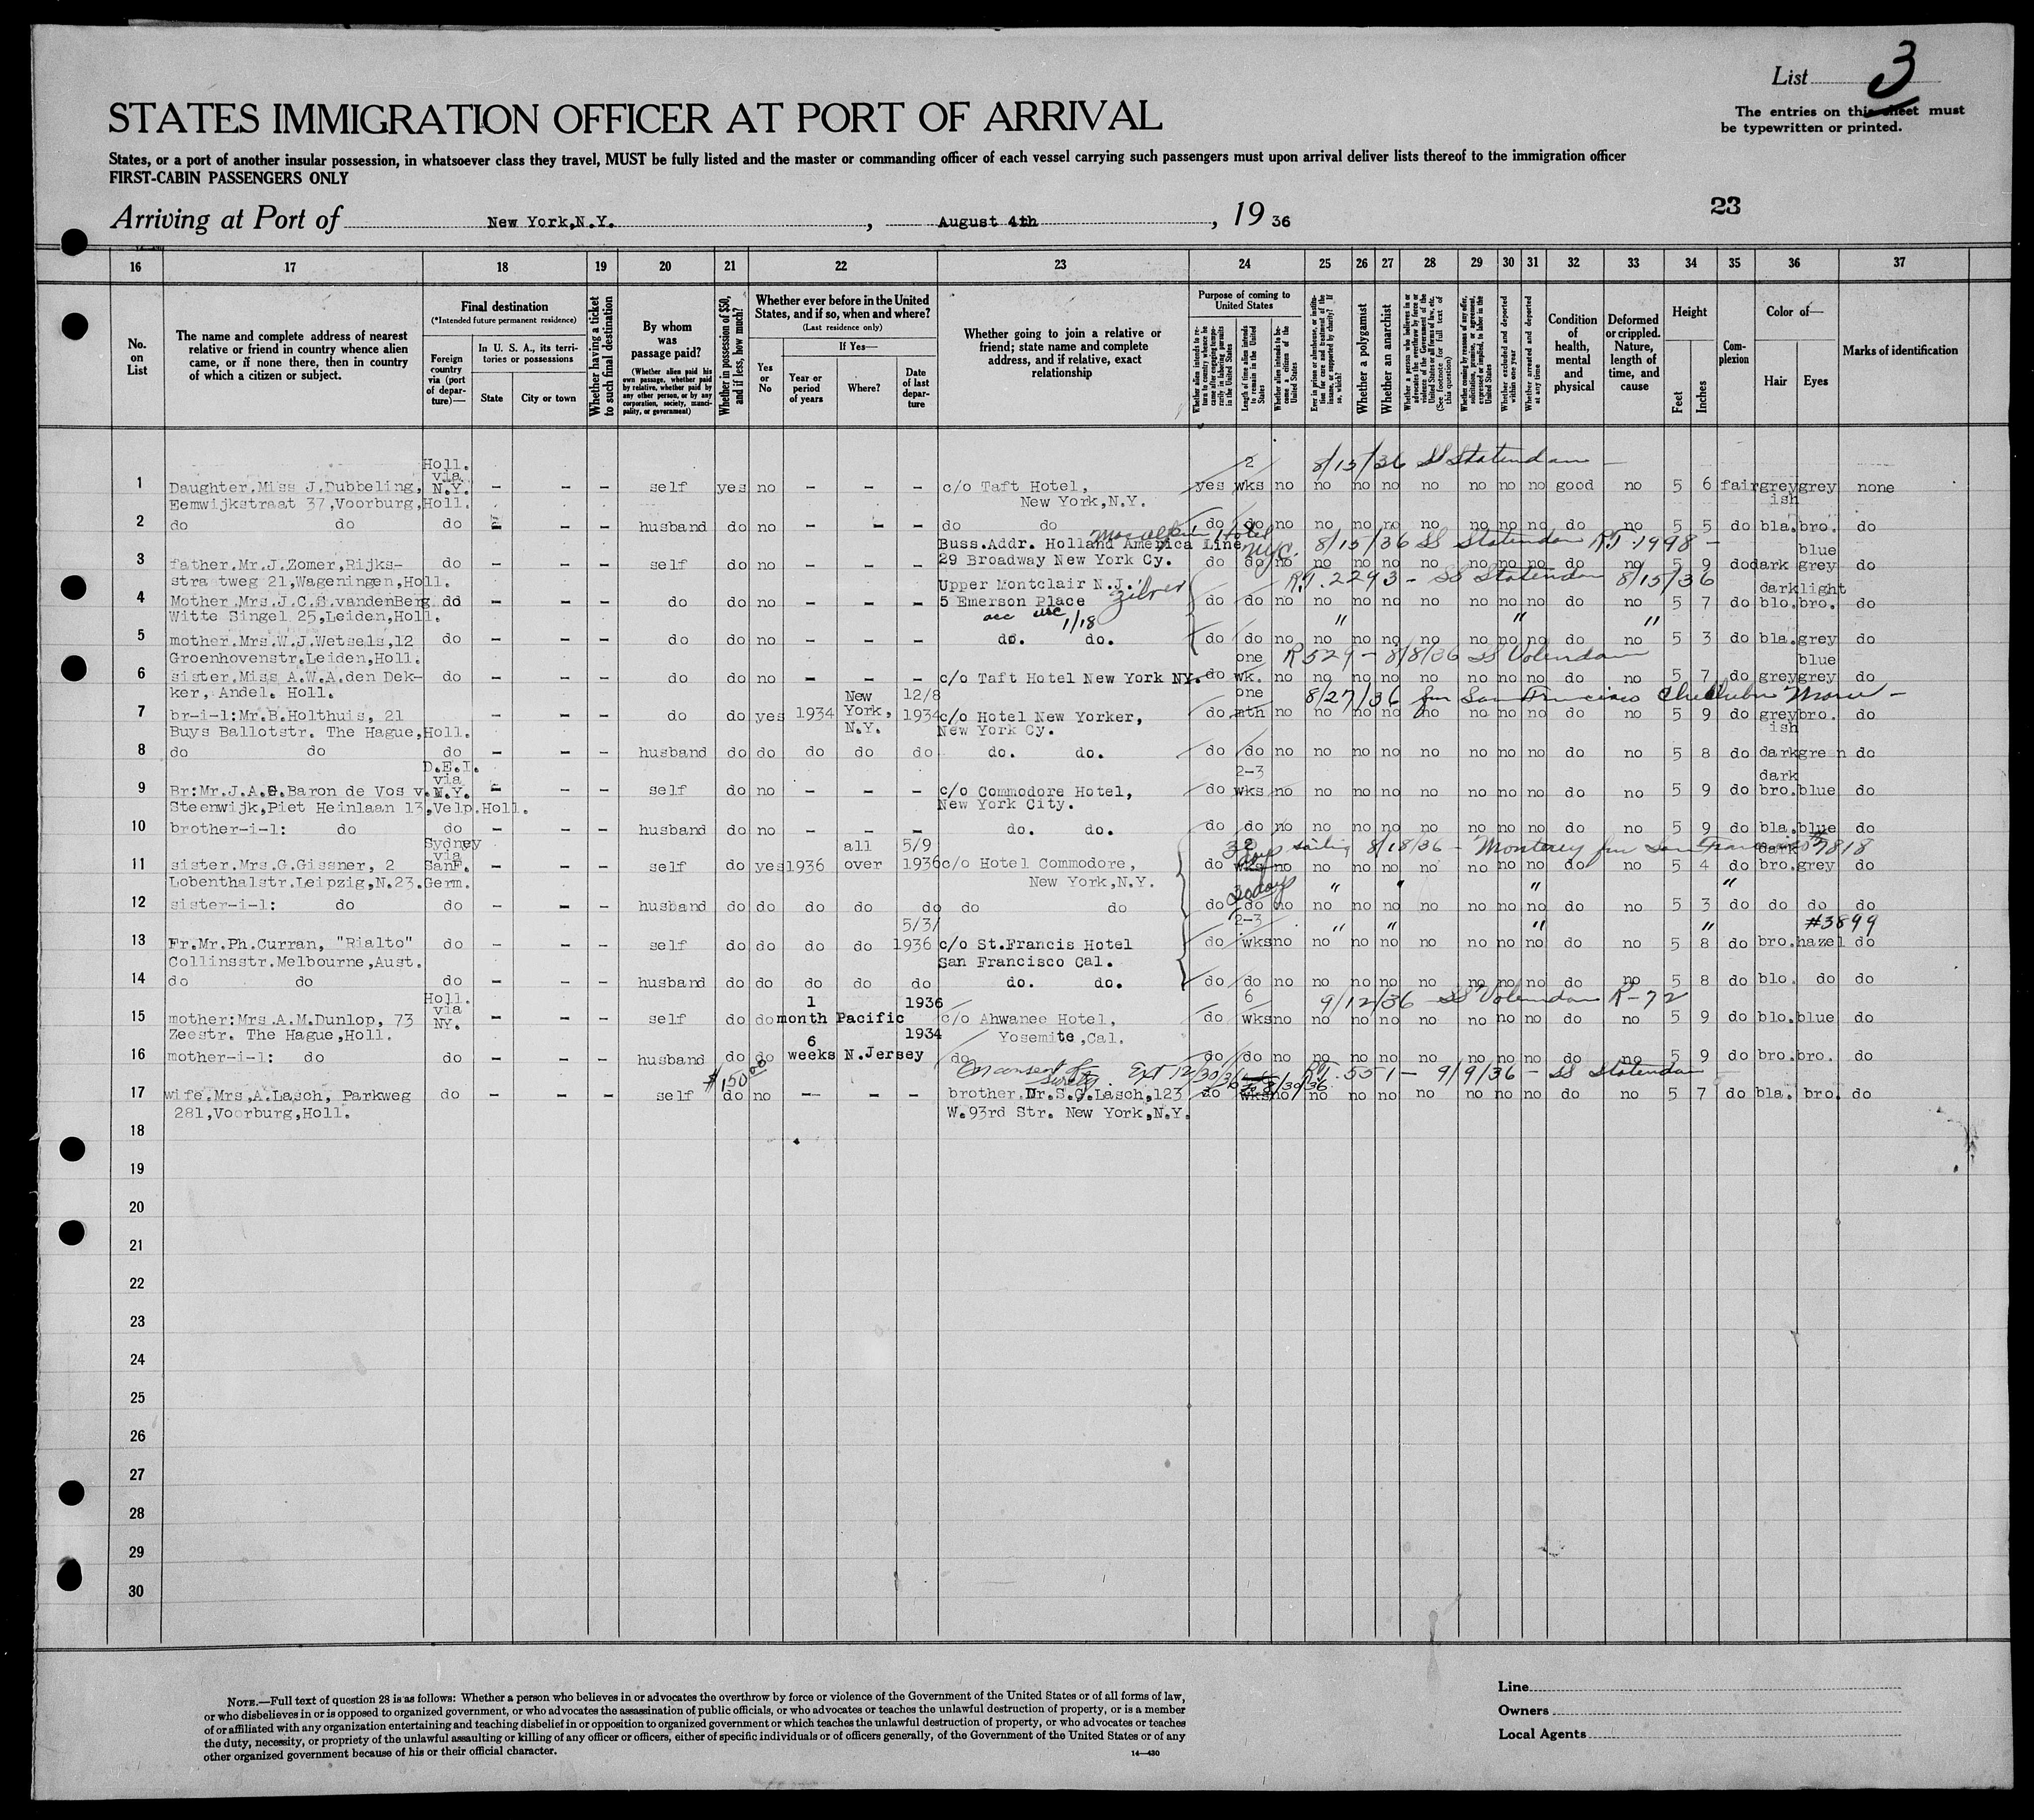 List 3
STATES IMMIGRATION OFFICER AT PORT OF ARRIVAL
The entries on this sheet must
be typewritten or printed.
States, or a port of another insular possession, in whatsoever class they travel, MUST be fully listed and the master or commanding officer of each vessel carrying such passengers must upon arrival deliver lists thereof to the immigration officer
FIRST-CABIN PASSENGERS ONLY
23
Arriving at Port of New York,N.Y. , August 4th , 19 36
16 17 18 19 20 21 22 23 24 25 26 27 28 29 30 31 32 33 34 35 36 37
No. on List
The name and complete address of nearest relative or friend in country whence alien came, or if none there, then in country of which a citizen or subject.
Final destination
(*Intended future permanent residence)
Foreign country via (port of departure)—
In U. S. A., its territories or possessions
State
City or town
Whether having a ticket to such final destination
By whom was passage paid?
(Whether alien paid his own passage, whether paid by relative, whether paid by any other person, or by any corporation, society, municipality, or government)
Whether in possession of $50, and if less, how much?
Whether ever before in the United States, and if so, when and where?
(Last residence only)
Yes or No
If Yes—
Year or period of years
Where?
Date of last departure
Whether going to join a relative or friend; state name and complete address, and if relative, exact relationship
Purpose of coming to United States
Whether alien intends to return to country whence he came after engaging temporarily in laboring pursuits in the United States
Length of time alien intends to remain in the United States
Whether alien intends to become a citizen of the United States
Ever in prison or almshouse or institution for care and treatment of the insane, or supported by charity? If so, which?
Whether a polygamist
Whether an anarchist
Whether a person who believes in or advocates the overthrow by force or violence of the Government of the United States or all forms of law, etc. (See footnote for full text of this question)
Whether coming by reason of any offer, solicitation, promise, or agreement, expressed or implied, to labor in the United States
Whether excluded and deported within one year
Whether arrested and deported at any time
Condition of health, mental and physical
Deformed or crippled. Nature, length of time, and cause
Height
Feet
Inches
Complexion
Color of—
Hair
Eyes
Marks of identification
Holl. via 2 8/15/36 SS Statendam
1 Daughter.Miss J.Dubbeling, N.Y. - - - self yes no - - - c/o Taft Hotel, yes wks no no no no no no no no good no 5 6 fair greyish grey none
Eemwijkstraat 37,Voorburg,Holl. New York,N.Y.
2 do do do - - - husband do no - - - do do do do no no no no no no no no do no 5 5 do bla. bro. do
Buss.Addr. Holland America Line Hotel NYC. 8/15/36 SS Statendam RT.1998 - blue
3 father.Mr.J.Zomer,Rijks- do - - - self do no - - - 29 Broadway New York Cy. do do no no no no no no no no do no 5 9 do dark grey do
straatweg 21,Wageningen,Holl. Upper Montclair N.J. R.T.2293 - SS Statendam 8/15/36 dark light
4 Mother.Mrs.J.C.S.vandenBerg do - - - do do no - - - 5 Emerson Place do do no no no no no no no no do no 5 7 do blo. bro. do
Witte Singel 25,Leiden,Holl. 1/18 " " "
5 mother.Mrs.W.J.Wetsels,12 do - - - do do no - - - do. do. do do no no no no no no no no do no 5 3 do bla. grey do
Groenhovenstr.Leiden,Holl. one R529 - 8/8/36 SS Volendam blue
6 sister.Miss A.W.A.den Dek- do - - - do do no - - - c/o Taft Hotel New York NY. do wk. no no no no no no no no do no 5 7 do grey grey do
ker, Andel. Holl. New York, N.Y. 12/8 one 8/27/36 fm San Francisco
7 br-i-l:Mr.B.Holthuis, 21 do - - - do do yes 1934 1934 c/o Hotel New Yorker, do mth no no no no no no no no do no 5 9 do greyish bro. do
Buys Ballotstr. The Hague,Holl. New York Cy.
8 do do do - - - husband do do do do do do. do. do do no no no no no no no no do no 5 8 do dark green do
D.E.I. via 2-3 dark
9 Br:Mr.J.A.G.Baron de Vos v. N.Y. - - - self do no - - - c/o Commodore Hotel, do wks no no no no no no no no do no 5 9 do bro. blue do
Steenwijk,Piet Heinlaan 13,Velp.Holl. New York City.
10 brother-i-l: do do - - - husband do no - - - do. do. do do no no no no no no no no do no 5 9 do bla. blue do
Sydney via all 5/9 days sailing 8/18/36 - Monterey fm San Francisco dark
11 sister.Mrs.G.Gissner, 2 SanF. - - - self do yes 1936 over 1936 c/o Hotel Commodore, do wks no no no no no no no no do no 5 4 do bro. grey do
Lobenthalstr.Leipzig,N.23.Germ. New York,N.Y. 30days " " " "
12 sister-i-l: do do - - - husband do do do do do do do do do no no no no no no no no do no 5 3 do do do do
5/3/ 2-3 " " " " #3899
13 Fr.Mr.Ph.Curran, "Rialto" do - - - self do do do do 1936 c/o St.Francis Hotel do wks no no no no no no no no do no 5 8 do bro. hazel do
Collinsstr.Melbourne,Aust. San Francisco Cal.
14 do do do - - - husband do do do do do do. do. do do no no no no no no no no do no 5 8 do blo. do do
Holl. via 1 1936 6 9/12/36 - SS Volendam R-72
15 mother:Mrs.A.M.Dunlop, 73 NY. - - - self do do month Pacific c/o Ahwanee Hotel, do wks no no no no no no no no do no 5 9 do blo. blue do
Zeestr. The Hague,Holl. 6 1934 Yosemite,Cal.
16 mother-i-l: do do - - - husband do do weeks N.Jersey do do do no no no no no no no no do no 5 9 do bro. bro. do
$150.00 Ext 12/30/36 8/30/36 R.T.551 - 9/9/36 - SS Statendam
17 wife.Mrs,A.Lasch, Parkweg do - - - self do no - - - brother.Dr.S.G.Lasch,123 do wks no no no no no no no no do no 5 7 do bla. bro. do
281,Voorburg,Holl. W.93rd Str. New York,N.Y.
18
19
20
21
22
23
24
25
26
27
28
29
30
NOTE.—Full text of question 28 is as follows: Whether a person who believes in or advocates the overthrow by force or violence of the Government of the United States or of all forms of law,
or who disbelieves in or is opposed to organized government, or who advocates the assassination of public officials, or who advocates or teaches the unlawful destruction of property, or is a member
of or affiliated with any organization entertaining and teaching disbelief in or opposition to organized government or which teaches the unlawful destruction of property, or who advocates or teaches
the duty, necessity, or propriety of the unlawful assaulting or killing of any officer or officers, either of specific individuals or of officers generally, of the Government of the United States or of any
other organized government because of his or their official character.
14—430
Line
Owners
Local Agents